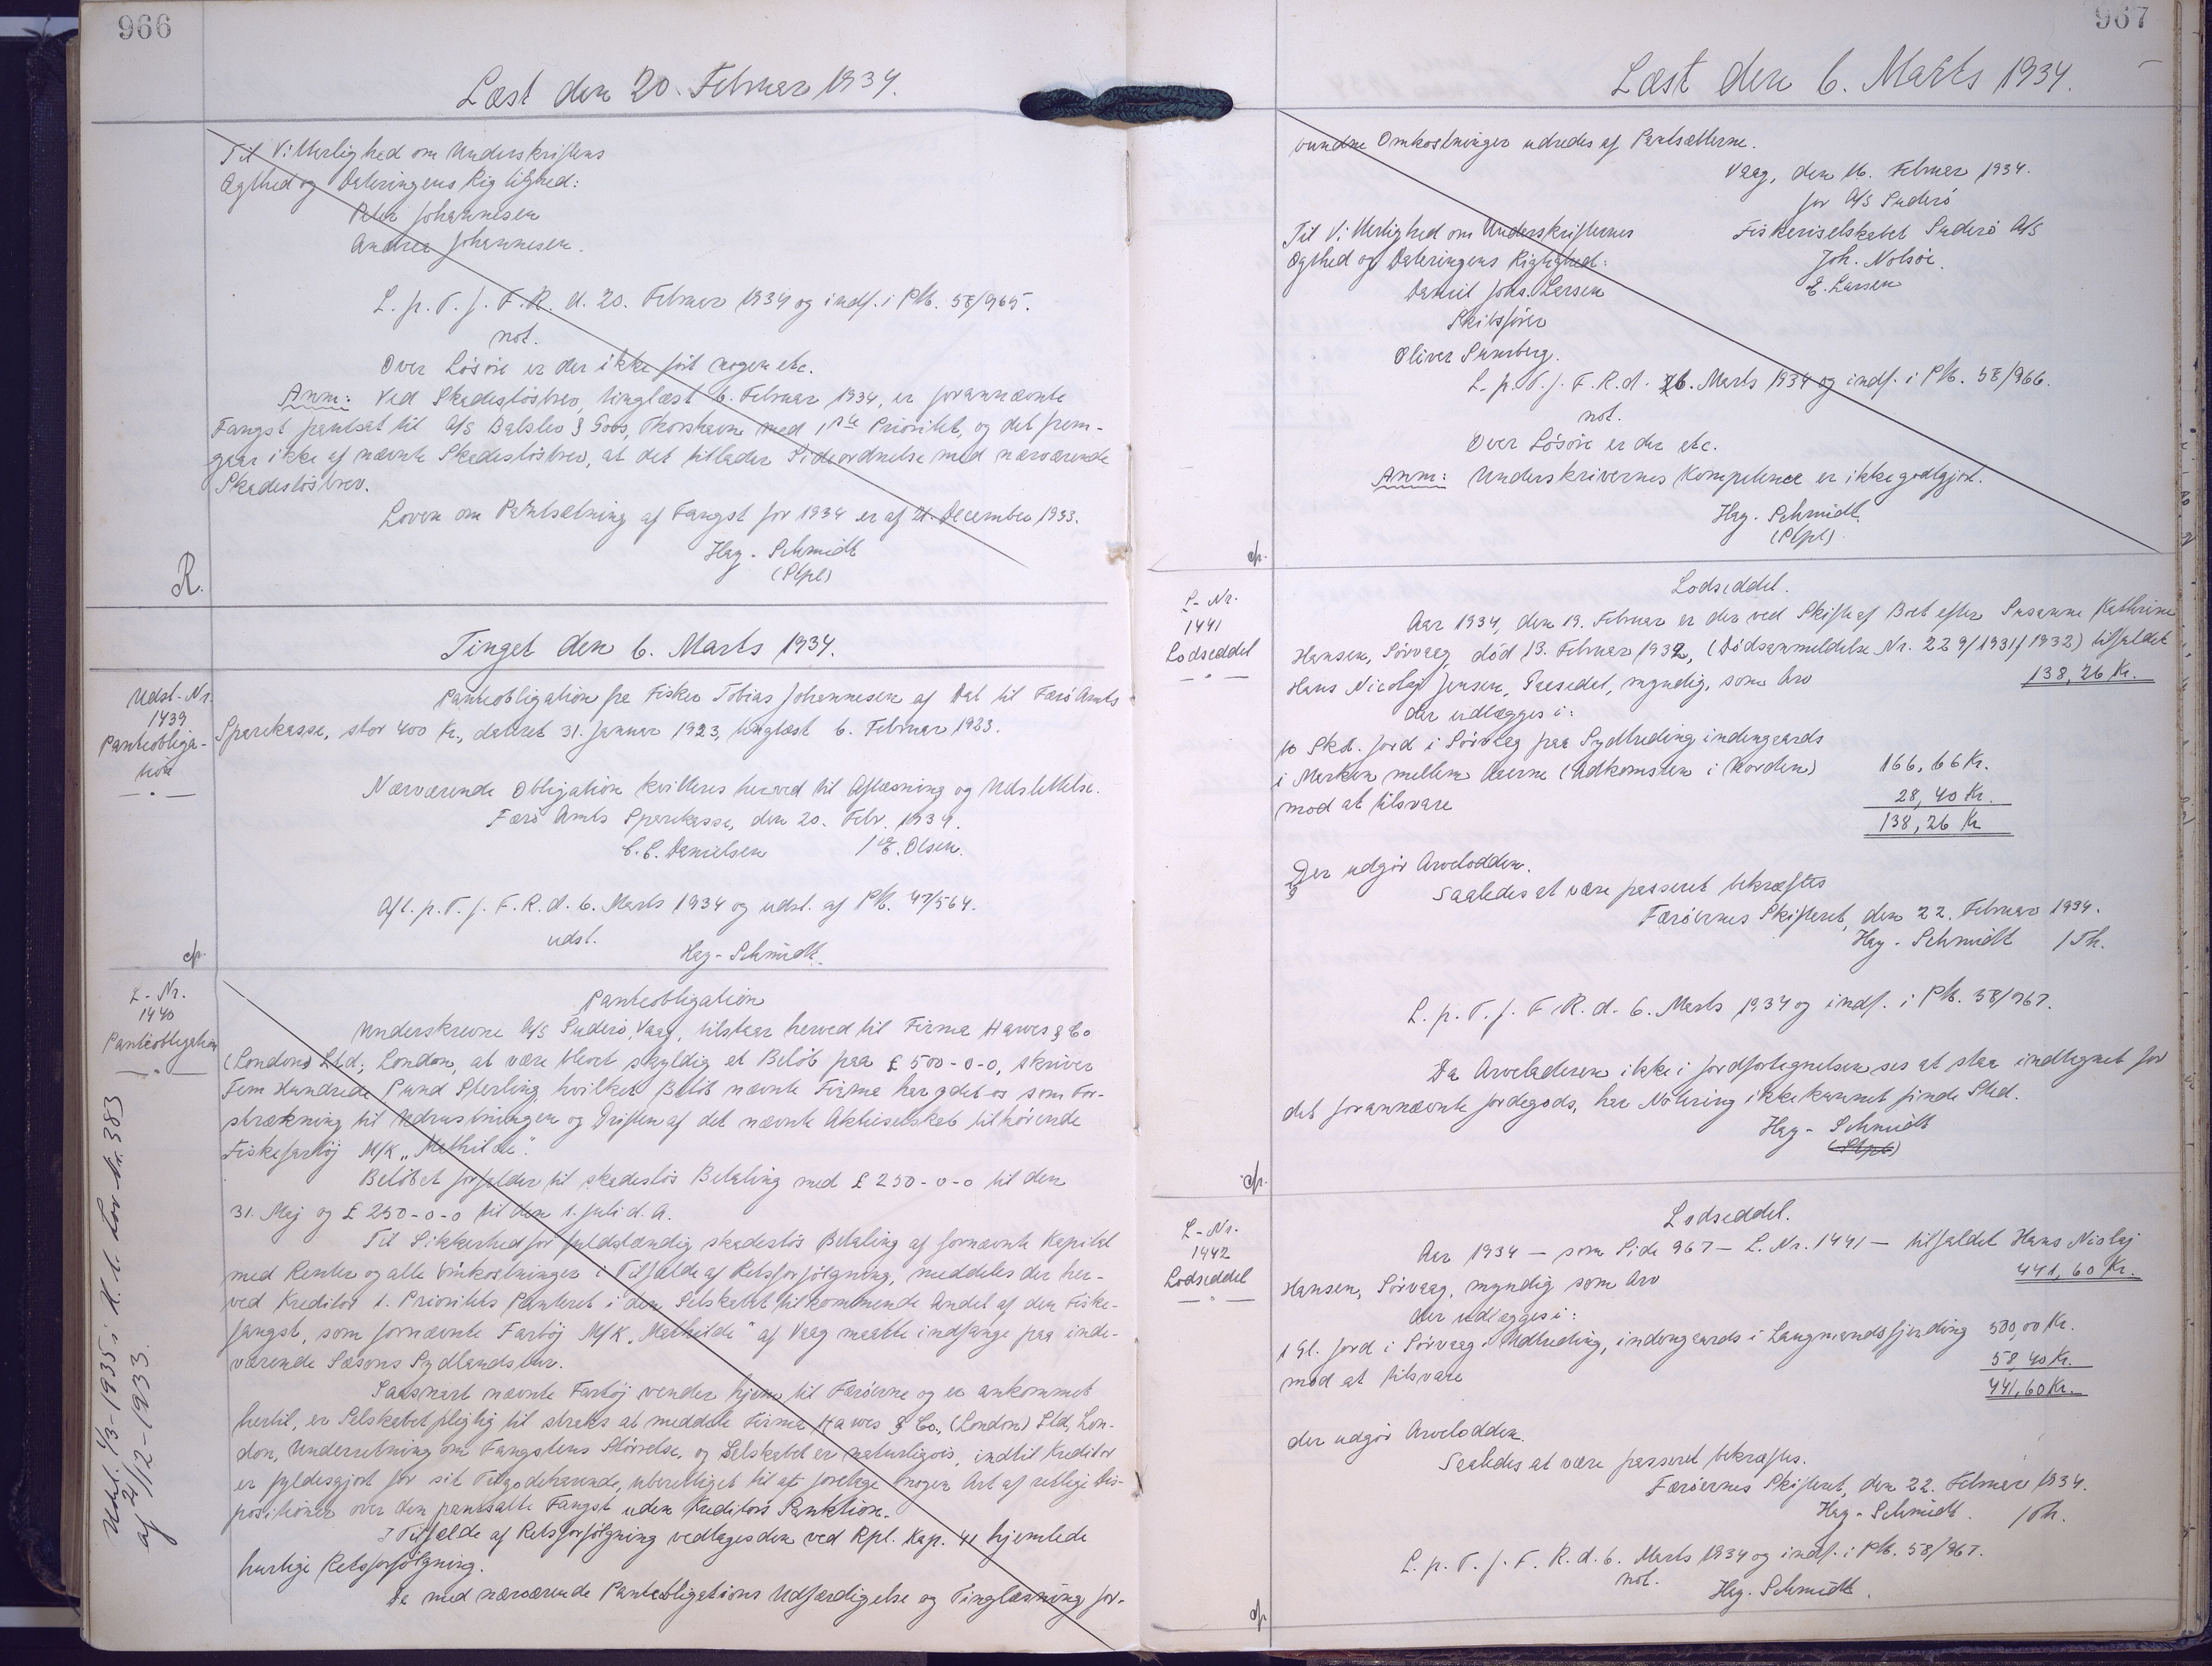 966
Læst den 20. Februar 1934.
Til Vitterlighed om Underskriftens
Ægthed og Dateringens Rigtighed:
Peter Johannesen
Andrea Johannesen.
L. p. T. f. F. R. d. 20. Februar 1934 og indf. i Pb. 58/965.
not.
Over Lösöre er der ikke fört nogen etc.
Anm: Ved Skadeslösbrev, tinglæst 6. Februar 1934, er forannævnte
Fangst pantsat til A/S Balslev & Goos, Thorshavn med 1ste Prioritet, og det frem-
gaar ikke af nævnte Skadeslösbrev, at det tillader Sideordnelse med nærværende
Skadeslösbrev.
Loven om Pantsætning af Fangst for 1934 er af 21. December 1933.
Hay-Schmidt
(Pgl)
R.
Tinget den 6. Marts 1934.
Udsl.-Nr.
1439
Panteobliga-
tion
Panteobligation fra Fisker Tobias Johannesen af Dal til Færö Amts
Sparekasse, stor 400 Kr., dateret 31. Januar 1923, tinglæst 6. Februar 1923.
Nærværende Obligation kvitteres herved til Aflæsning og Udslettelse.
Færö Amts Sparekasse, den 20. Febr. 1934.
C.C. Danielsen / E. Olsen.
Afl. p. T. f. F. R. d. 6. Marts 1934 og udsl. af Pb. 47/564.
udsl.
Hay-Schmidt.
cp.
L-Nr.
1440
Panteobligation
Panteobligation
Underskrevne A/S Suderö, Vaag, tilstaar herved til Firma Hawes & Co
(London) Ltd., London, at være blevet skyldig et Belöb paa £ 500-0-0, skriver
Fem Hundrede Pund Sterling, hvilket Belöb nævnte Firma har ydet os som For-
strækning til Udrustningen og Driften af det nævnte Aktieselskab tilhörende
Fiskefartöj M/K „Mathilde".
Belöbet forfalder til skadeslös Betaling med £ 250-0-0 til den
31. Maj og £ 250-0-0 til den 1. Juli d. A.
Til Sikkerhed for fuldstændig skadeslös Betaling af fornævnte Kapital
med Renter og alle Omkostninger i Tilfælde af Retsforfölgning, meddeles der her-
ved Kreditor 1. Prioritets Panteret i den Selskabet tilkommende Andel af den Fiske-
fangst, som fornævnte Fartöj M/K „Mathilde" af Vaag maatte indfange paa inde-
værende Sæsons Sydlandstur.
Saasnart nævnte Fartöj vender hjem til Færöerne og er ankommet
hertil, er Selskabet pligtig til straks at meddele Firma Hawes & Co., (London) Ltd, Lon-
don, Underretning om Fangstens Störrelse, og Selskabet er naturligvis, indtil Kreditor
er fyldesgjort for sit Tilgodehavende, uberettiget til at foretage nogen Art af retlige Dis-
positioner over den pantsatte Fangst uden Kreditors Sanktion.
I Tilfælde af Retsforfölgning vedtages den ved Rpl. Kap. 41 hjemlede
hurtige Retsforfölgning.
De med nærværende Panteobligations Udfærdigelse og Tinglæsning for-
Udsl. 1/3-1935 i H. t. Lov Nr. 383
af 21/12-1933.
967
Læst den 6. Marts 1934.
bundne Omkostninger udredes af Pantsætterne.
Vaag, den 16. Februar 1934.
for A/S Suderö
Fiskeriselskabet Suderö A/S
Joh. Nolsöe.
E. Larsen
Til Vitterlighed om Underskrifternes
Ægthed og Dateringens Rigtighed:
Daniel Johs. Larsen
Skibsförer
Oliver Sumberg.
L. p. T. f. F. R. d. 6. Marts 1934 og indf. i Pb. 58/966.
not.
Over Lösöre er der etc.
Anm: Underskrivernes Kompetence er ikke godtgjort.
Hay-Schmidt.
(Pgl)
cp.
L-Nr.
1441
Lodseddel
Lodseddel.
Aar 1934, den 19. Februar er der ved Skifte af Boet efter Susanne Kathrine
Hansen, Sörvaag, död 13. Februar 1932, (Dödsanmeldelse Nr. 229/1931/1932) tilfaldet
Hans Nicolaj Jensen, Gaasedal, myndig, som Arv 138,26 Kr.
der udlægges i:
10 Skd. Jord i Sörvaag paa Sydtreding indengaards
i Marken mellem Aaerne (Adkomsten i Norden) 166,66 Kr.
mod at tilsvare 28,40 Kr.
138,26 Kr
Der udgör Arvelodden.
Saaledes at være passeret bekræftes
Færöernes Skifteret, den 22. Februar 1934.
Hay-Schmidt / Th.
L. p. T. f. F. R. d. 6. Marts 1934 og indf. i Pb. 58/967.
Da Arveladeren ikke i Jordfortegnelsen ses at staa indtegnet for
det forannævnte Jordegods, har Notering ikke kunnet finde Sted.
Hay-Schmidt
cp.
L-Nr.
1442
Lodseddel
Lodseddel.
Aar 1934 — som Side 967 — L. Nr. 1441 — tilfaldet Hans Nicolaj
Hansen, Sörvaag, myndig som Arv 441,60 Kr.
der udlægges i:
1 Gl. Jord i Sörvaag, Midtreding, indengaards i Laugmandsfjerding 500,00 Kr.
mod at tilsvare 58,40 Kr.
441,60 Kr.
der udgör Arvelodden.
Saaledes at være passeret bekræftes.
Færöernes Skifteret, den 22. Februar 1934.
Hay-Schmidt. / Th.
L. p. T. f. F. R. d. 6. Marts 1934 og indf. i Pb. 58/967.
not.
Hay-Schmidt.
cp.